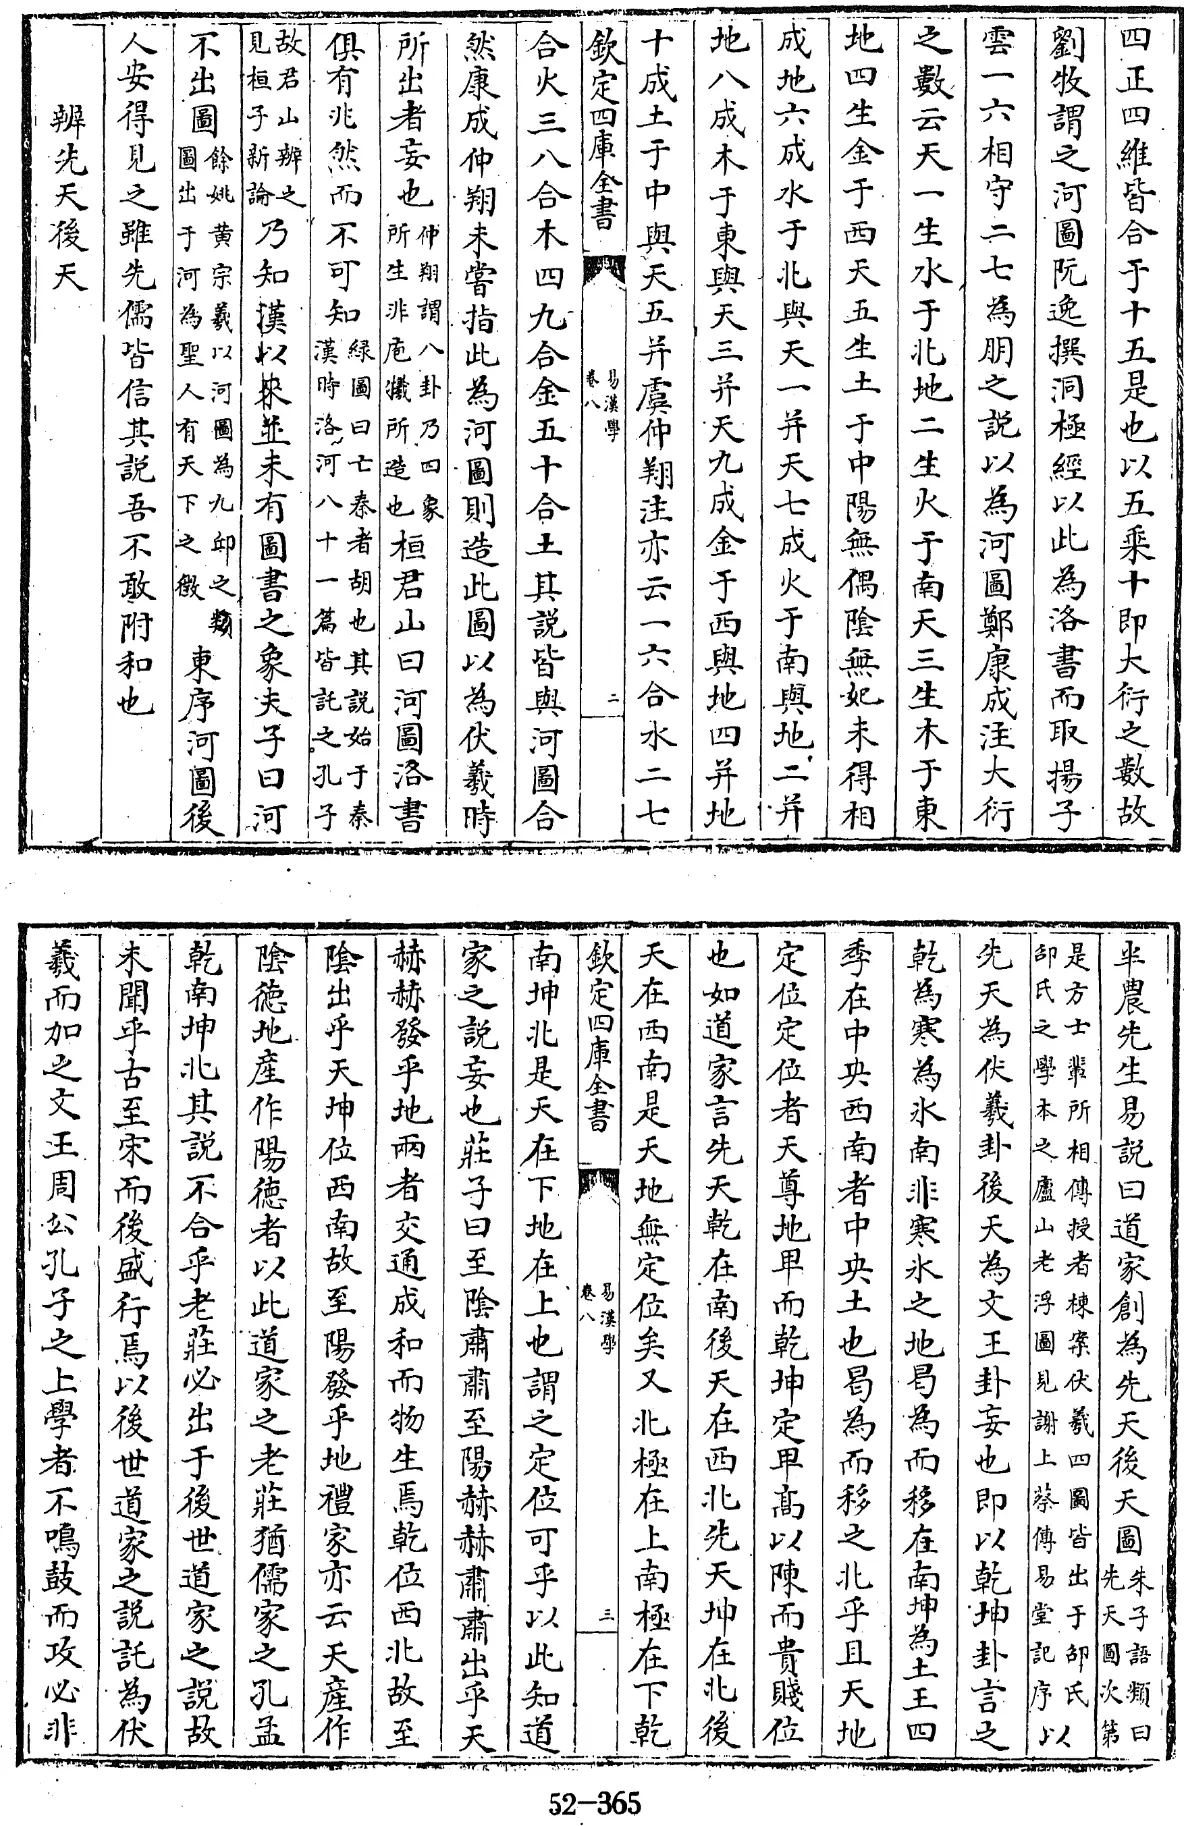 四正四維皆合于十五是也以五乘十即大衍之數故
劉牧謂之河圖阮逸撰洞極經以此為洛書而取揚子
雲一六相守二七為朋之説以為河圖鄭康成注大衍
之數云天一生水于北地二生火于南天三生木于東
地四生金于西天五生土于中陽無偶陰無妃未得相
成地六成水于北與天一并天七成火于南與地二并
地八成木于東與天三并天九成金于西與地四并地
十成土于中與天五并虞仲翔注亦云一六合水二七
欽定四庫全書
易漢學
卷八
二
合火三八合木四九合金五十合土其説皆與河圖合
然康成仲翔未嘗指此為河圖則造此圖以為伏羲時
所出者妄也仲翔謂八卦乃四象所生非庖犧所造也桓君山曰河圖洛書
俱有兆然而不可知緑圖曰亡秦者胡也其説始于秦漢時洛河八十一篇皆託之孔子
故君山辨之見桓子新論乃知漢以來並未有圖書之象夫子曰河
不出圖餘姚黄宗羲以河圖為九邱之類圖出于河為聖人有天下之徵東序河圖後
人安得見之雖先儒皆信其説吾不敢附和也
辨先天後天
半農先生易説曰道家創為先天後天圖朱子語類曰先天圖次第
是方士輩所相傳授者棟案伏羲四圖皆出于邵氏以邵氏之學本之廬山老浮圖見謝上蔡傳易堂記序以
先天為伏羲卦後天為文王卦妄也即以乾坤卦言之
乾為寒為氷南非寒氷之地曷為而移在南坤為土王四
季在中央西南者中央土也曷為而移之北乎且天地
定位定位者天尊地卑而乾坤定卑髙以陳而貴賤位
也如道家言先天乾在南後天在西北先天坤在北後
天在西南是天地無定位矣又北極在上南極在下乾
欽定四庫全書
易漢學
卷八
三
南坤北是天在下地在上也謂之定位可乎以此知道
家之説妄也莊子曰至陰肅肅至陽赫赫肅肅出乎天
赫赫發乎地兩者交通成和而物生焉乾位西北故至
陰出乎天坤位西南故至陽發乎地禮家亦云天産作
陰徳地産作陽徳者以此道家之老莊猶儒家之孔孟
乾南坤北其説不合乎老莊必出于後世道家之説故
未聞乎古至宋而後盛行焉以後世道家之説託為伏
羲而加之文王周公孔子之上學者不鳴鼓而攻必非
52-365